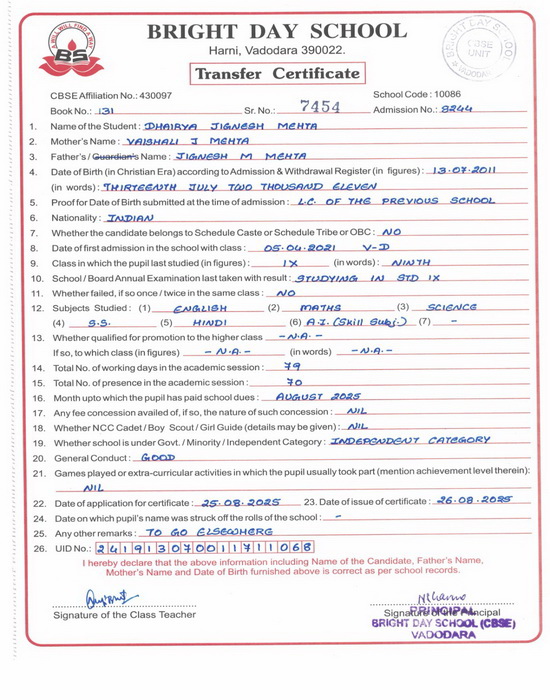 A WILL WILL FIND A WAY
BS
BRIGHT DAY SCHOOL
Harni, Vadodara 390022.
Transfer Certificate
BRIGHT DAY SCHOOL
CBSE
UNIT
VADODARA
CBSE Affiliation No.: 430097 School Code : 10086
Book No.: 131 Sr. No.: 7454 Admission No.: 8244
1. Name of the Student : DHAIRYA JIGNESH MEHTA
2. Mother's Name : VAISHALI J MEHTA
3. Father's / Guardian's Name : JIGNESH M MEHTA
4. Date of Birth (in Christian Era) according to Admission & Withdrawal Register (in figures) : 13-07-2011
(in words) : THIRTEENTH JULY TWO THOUSAND ELEVEN
5. Proof for Date of Birth submitted at the time of admission : L.C. OF THE PREVIOUS SCHOOL
6. Nationality : INDIAN
7. Whether the candidate belongs to Schedule Caste or Schedule Tribe or OBC : NO
8. Date of first admission in the school with class : 05-04-2021 V-D
9. Class in which the pupil last studied (in figures) : IX (in words) : NINTH
10. School / Board Annual Examination last taken with result : STUDYING IN STD IX
11. Whether failed, if so once / twice in the same class : NO
12. Subjects Studied : (1) ENGLISH (2) MATHS (3) SCIENCE
(4) S.S. (5) HINDI (6) A.I. (Skill Subj.) (7) -
13. Whether qualified for promotion to the higher class - N.A. -
If so, to which class (in figures) - N.A. - (in words) - N.A. -
14. Total No. of working days in the academic session : 79
15. Total No. of presence in the academic session : 70
16. Month upto which the pupil has paid school dues : AUGUST 2025
17. Any fee concession availed of, if so, the nature of such concession : NIL
18. Whether NCC Cadet / Boy Scout / Girl Guide (details may be given) : NIL
19. Whether school is under Govt. / Minority / Independent Category : INDEPENDENT CATEGORY
20. General Conduct : GOOD
21. Games played or extra-curricular activities in which the pupil usually took part (mention achievement level therein):
NIL
22. Date of application for certificate : 25-08-2025 23. Date of issue of certificate : 26-08-2025
24. Date on which pupil's name was struck off the rolls of the school : -
25. Any other remarks : TO GO ELSEWHERE
26. UID No.: 241913070011711068
I hereby declare that the above information including Name of the Candidate, Father's Name,
Mother's Name and Date of Birth furnished above is correct as per school records.
Signature of the Class Teacher Signature of the Principal
PRINCIPAL
BRIGHT DAY SCHOOL (CBSE)
VADODARA